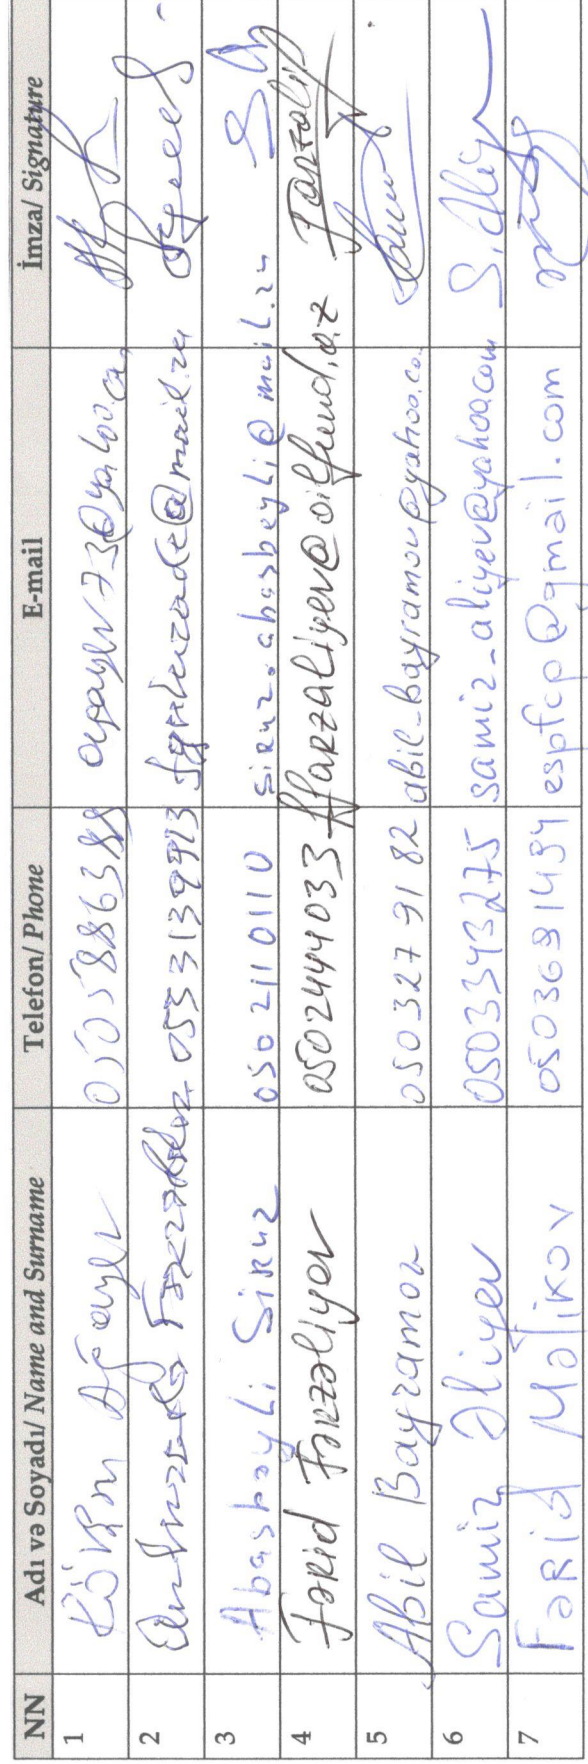 NN Adı və Soyadı/ Name and Surname Telefon/ Phone E-mail İmza/ Signature
1 0505886388
2 0553139913
3 Abasbəyli Siruz 0502110110 siruz.abasbeyli@mail.ru
4 Fərid Fərzəliyev 0502444033 ffarzaliyev@oilfund.az Farzaliy
5 Abil Bayramov 0503279182 abil_bayramov@yahoo.co
6 Samir Əliyev 0503343275 samir_aliyev@yahoo.com S.Aliyev
7 Fərid Məlikov 0503691454 espfcp@gmail.com